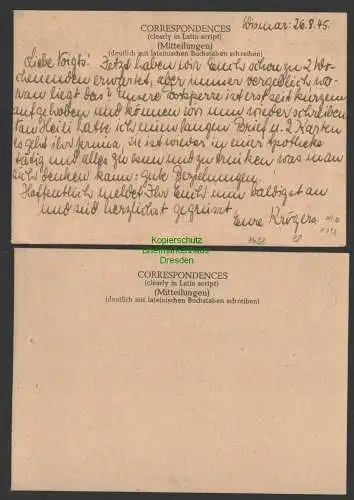 CORRESPONDENCES
(clearly in Latin script)
(Mitteilungen)
(deutlich auf lateinischen Buchstaben schreiben)
Wismar: 26.8.46.
Liebe Voigts! Jetzt haben wir Euch schon zu 2 Wo-
chenenden erwartet, aber immer vergeblich wo-
ran liegt das? Unsere Postsperre ist erst seit kurzem
aufgehoben und können wir nun wieder schreiben
Von Heili hatte ich einen langen Brief u. 2 Karten
es geht ihr prima, sie ist wieder in einer Apotheke
tätig und alles zu essen und zu trinken was man
sich denken kann: gute Beziehungen.
Hoffentlich meldet Ihr Euch nun baldigst an
und seid herzlichst gegrüsst
Eure Krögers
Kopierschutz
Briefmarkenhaus
Dresden
CORRESPONDENCES
(clearly in Latin script)
(Mitteilungen)
(deutlich aut lateinischen Buchstaben schreiben)